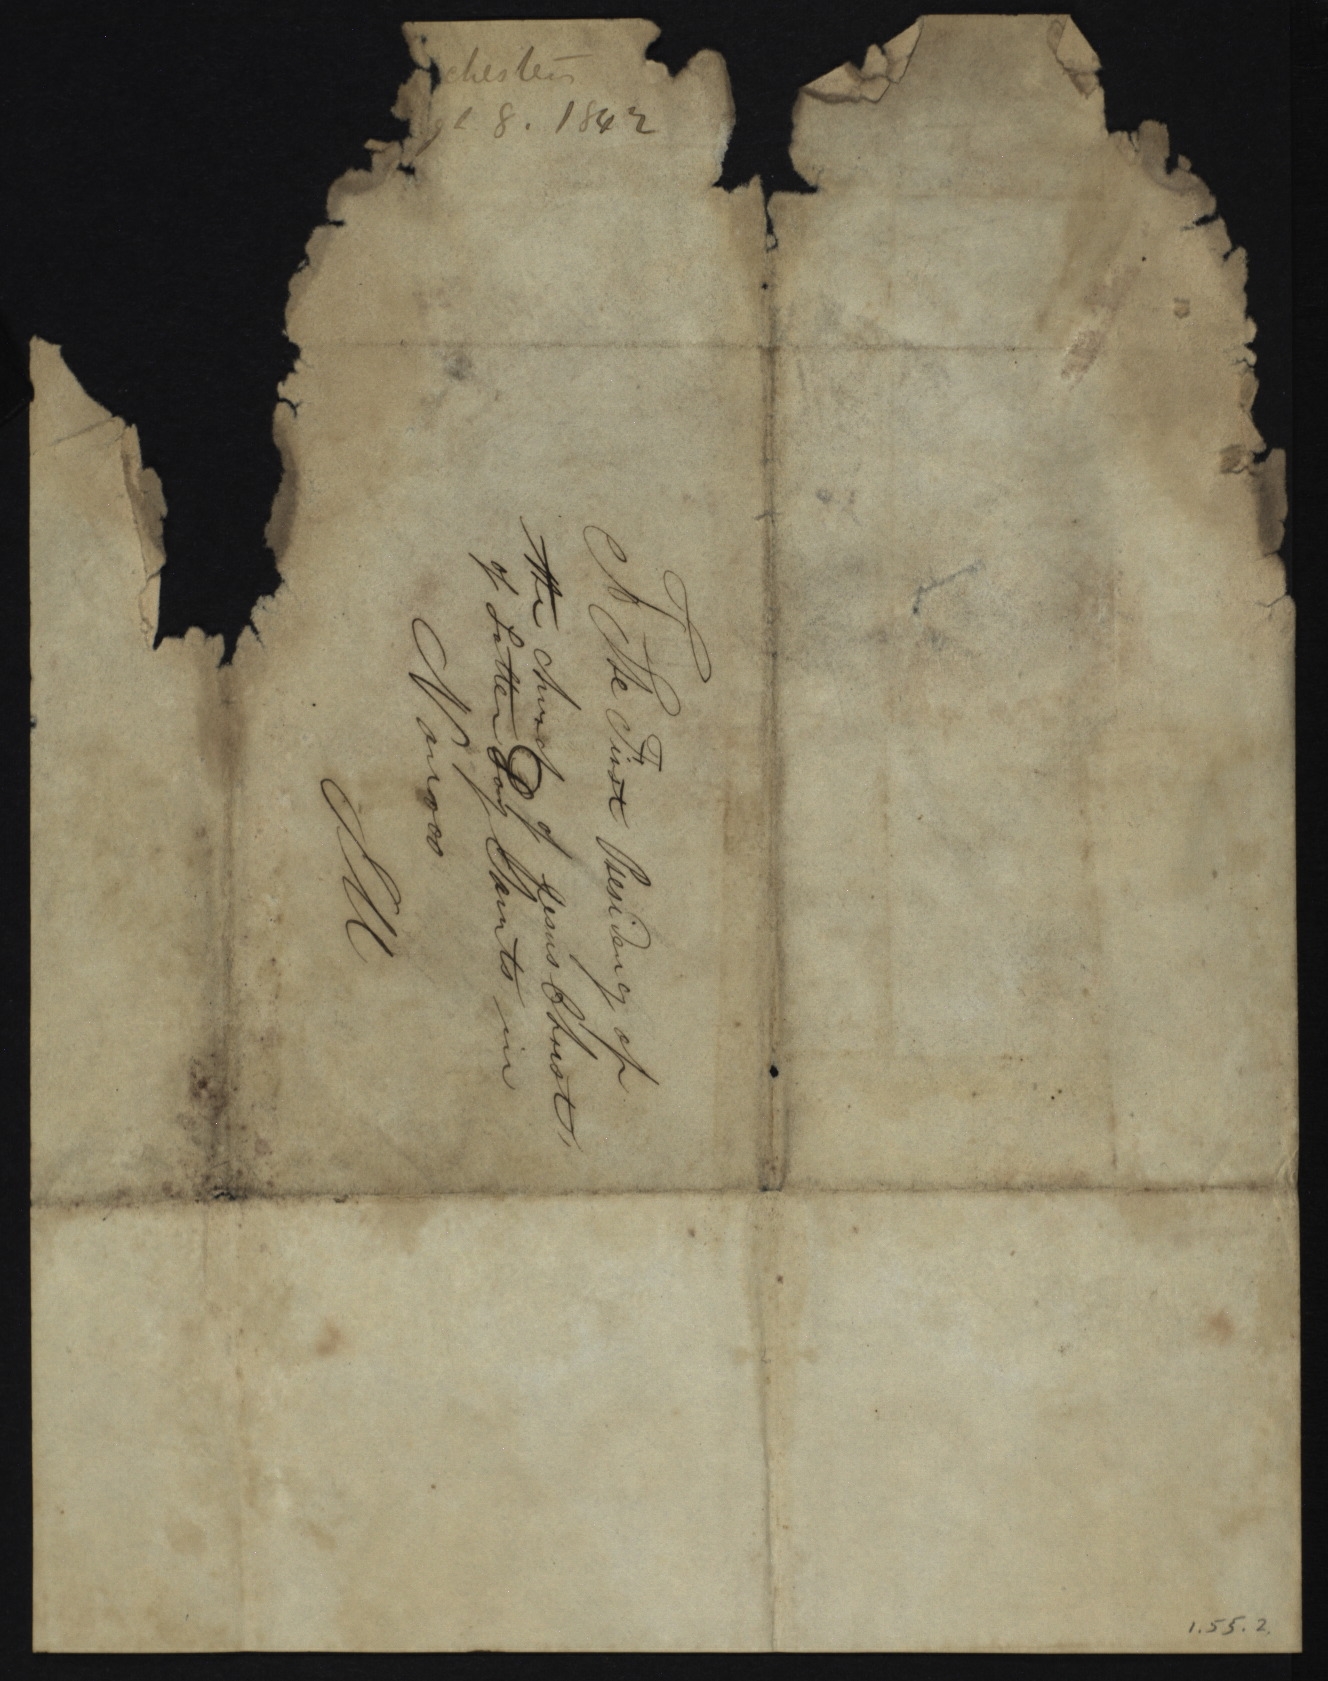 chester
8. 1842
To
The First Presidency of
the church of Jesus Christ,
of Latter Day Saints in
Nauvoo
Ill
1.55.2.